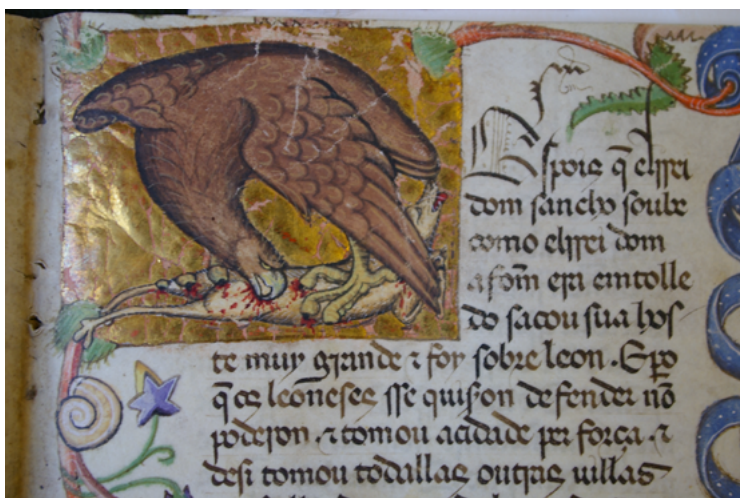 Espois q̃ elrrei
dom sancho soube
como elrrei dom
afom̃ era em tolle
do sacou sua hos
te muy grande ⁊ foy sobre leon . E p̃o
q̃ os leoneses sse quiserõ defender nõ
poderon . ⁊ tomou acidade per força . ⁊
desi tomou todallas outras uillas